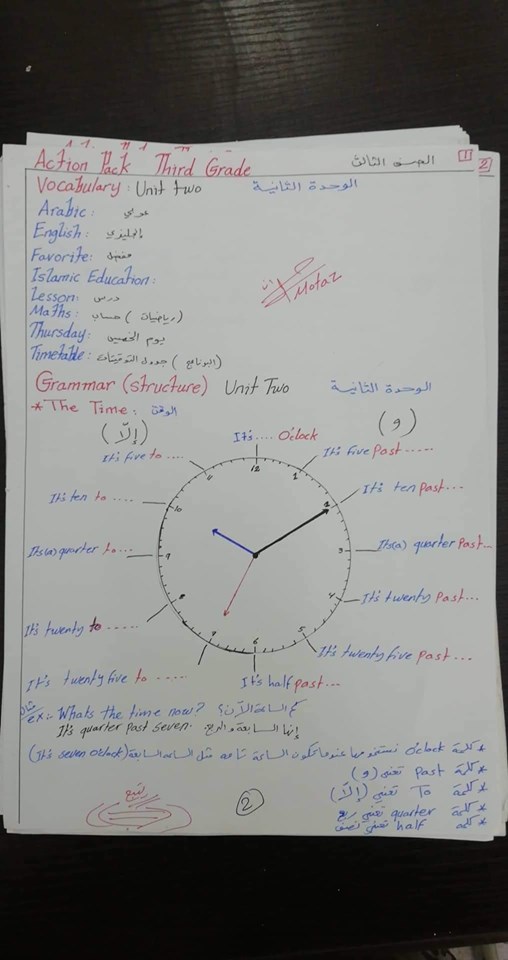 Action Pack Third Grade الصف الثالث 1 2
Vocabulary: Unit two الوحدة الثانية
Arabic: عربي
English: إنجليزي
Favorite: مفضل
Islamic Education:
Lesson: درس
Maths: حساب (رياضيات)
Thursday: يوم الخميس
Timetable: جدول التوقيتات (البرنامج)
Motaz
Grammar (structure) Unit Two الوحدة الثانية
* The Time: الوقت
(إلّا) (و)
It's .... O'clock
It's five to .... It's five past .....
It's ten to .... It's ten past ...
It's (a) quarter to ... It's (a) quarter past ...
It's twenty to ..... It's twenty past ...
It's twenty five to ..... It's twenty five past ...
It's half past ...
12 1 2 3 4 5 6 7 8 9 10 11
مثال ex:- Whats the time now? كم الساعة الآن؟
It's quarter past seven. إنها السابعة والربع
* كلمة o'clock نستخدمها عندما تكون الساعة تامة مثل الساعة السابعة (It's seven o'clock)
* كلمة past تعني (و)
* كلمة To تعني (إلّا)
* كلمة quarter تعني ربع
* كلمة half تعني نصف
2
يتبع